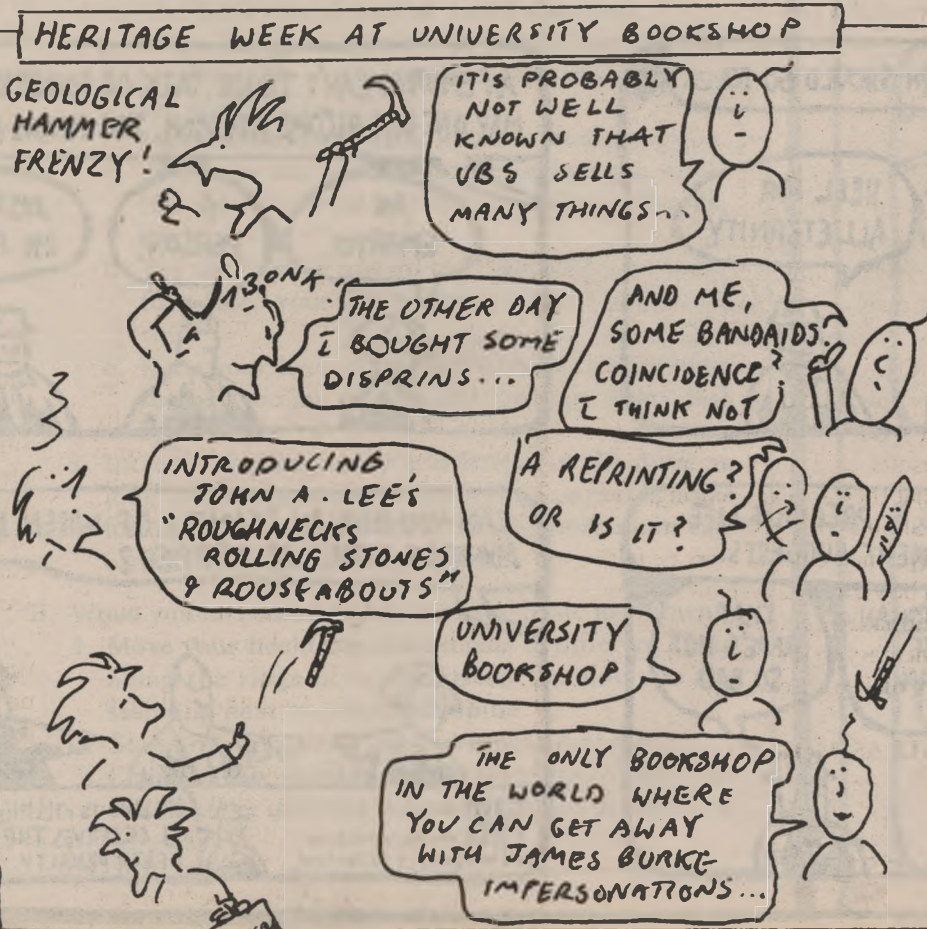 HERITAGE WEEK AT UNIVERSITY BOOKSHOP
GEOLOGICAL
HAMMER
FRENZY!
IT'S PROBABLY
NOT WELL
KNOWN THAT
UBS SELLS
MANY THINGS...
BONK!
THE OTHER DAY
I BOUGHT SOME
DISPRINS...
AND ME,
SOME BANDAIDS.
COINCIDENCE?
I THINK NOT
INTRODUCING
JOHN A. LEE'S
"ROUGHNECKS
ROLLING STONES
& ROUSEABOUTS"
A REPRINTING?
OR IS IT?
UNIVERSITY
BOOKSHOP
THE ONLY BOOKSHOP
IN THE WORLD WHERE
YOU CAN GET AWAY
WITH JAMES BURKE
IMPERSONATIONS...